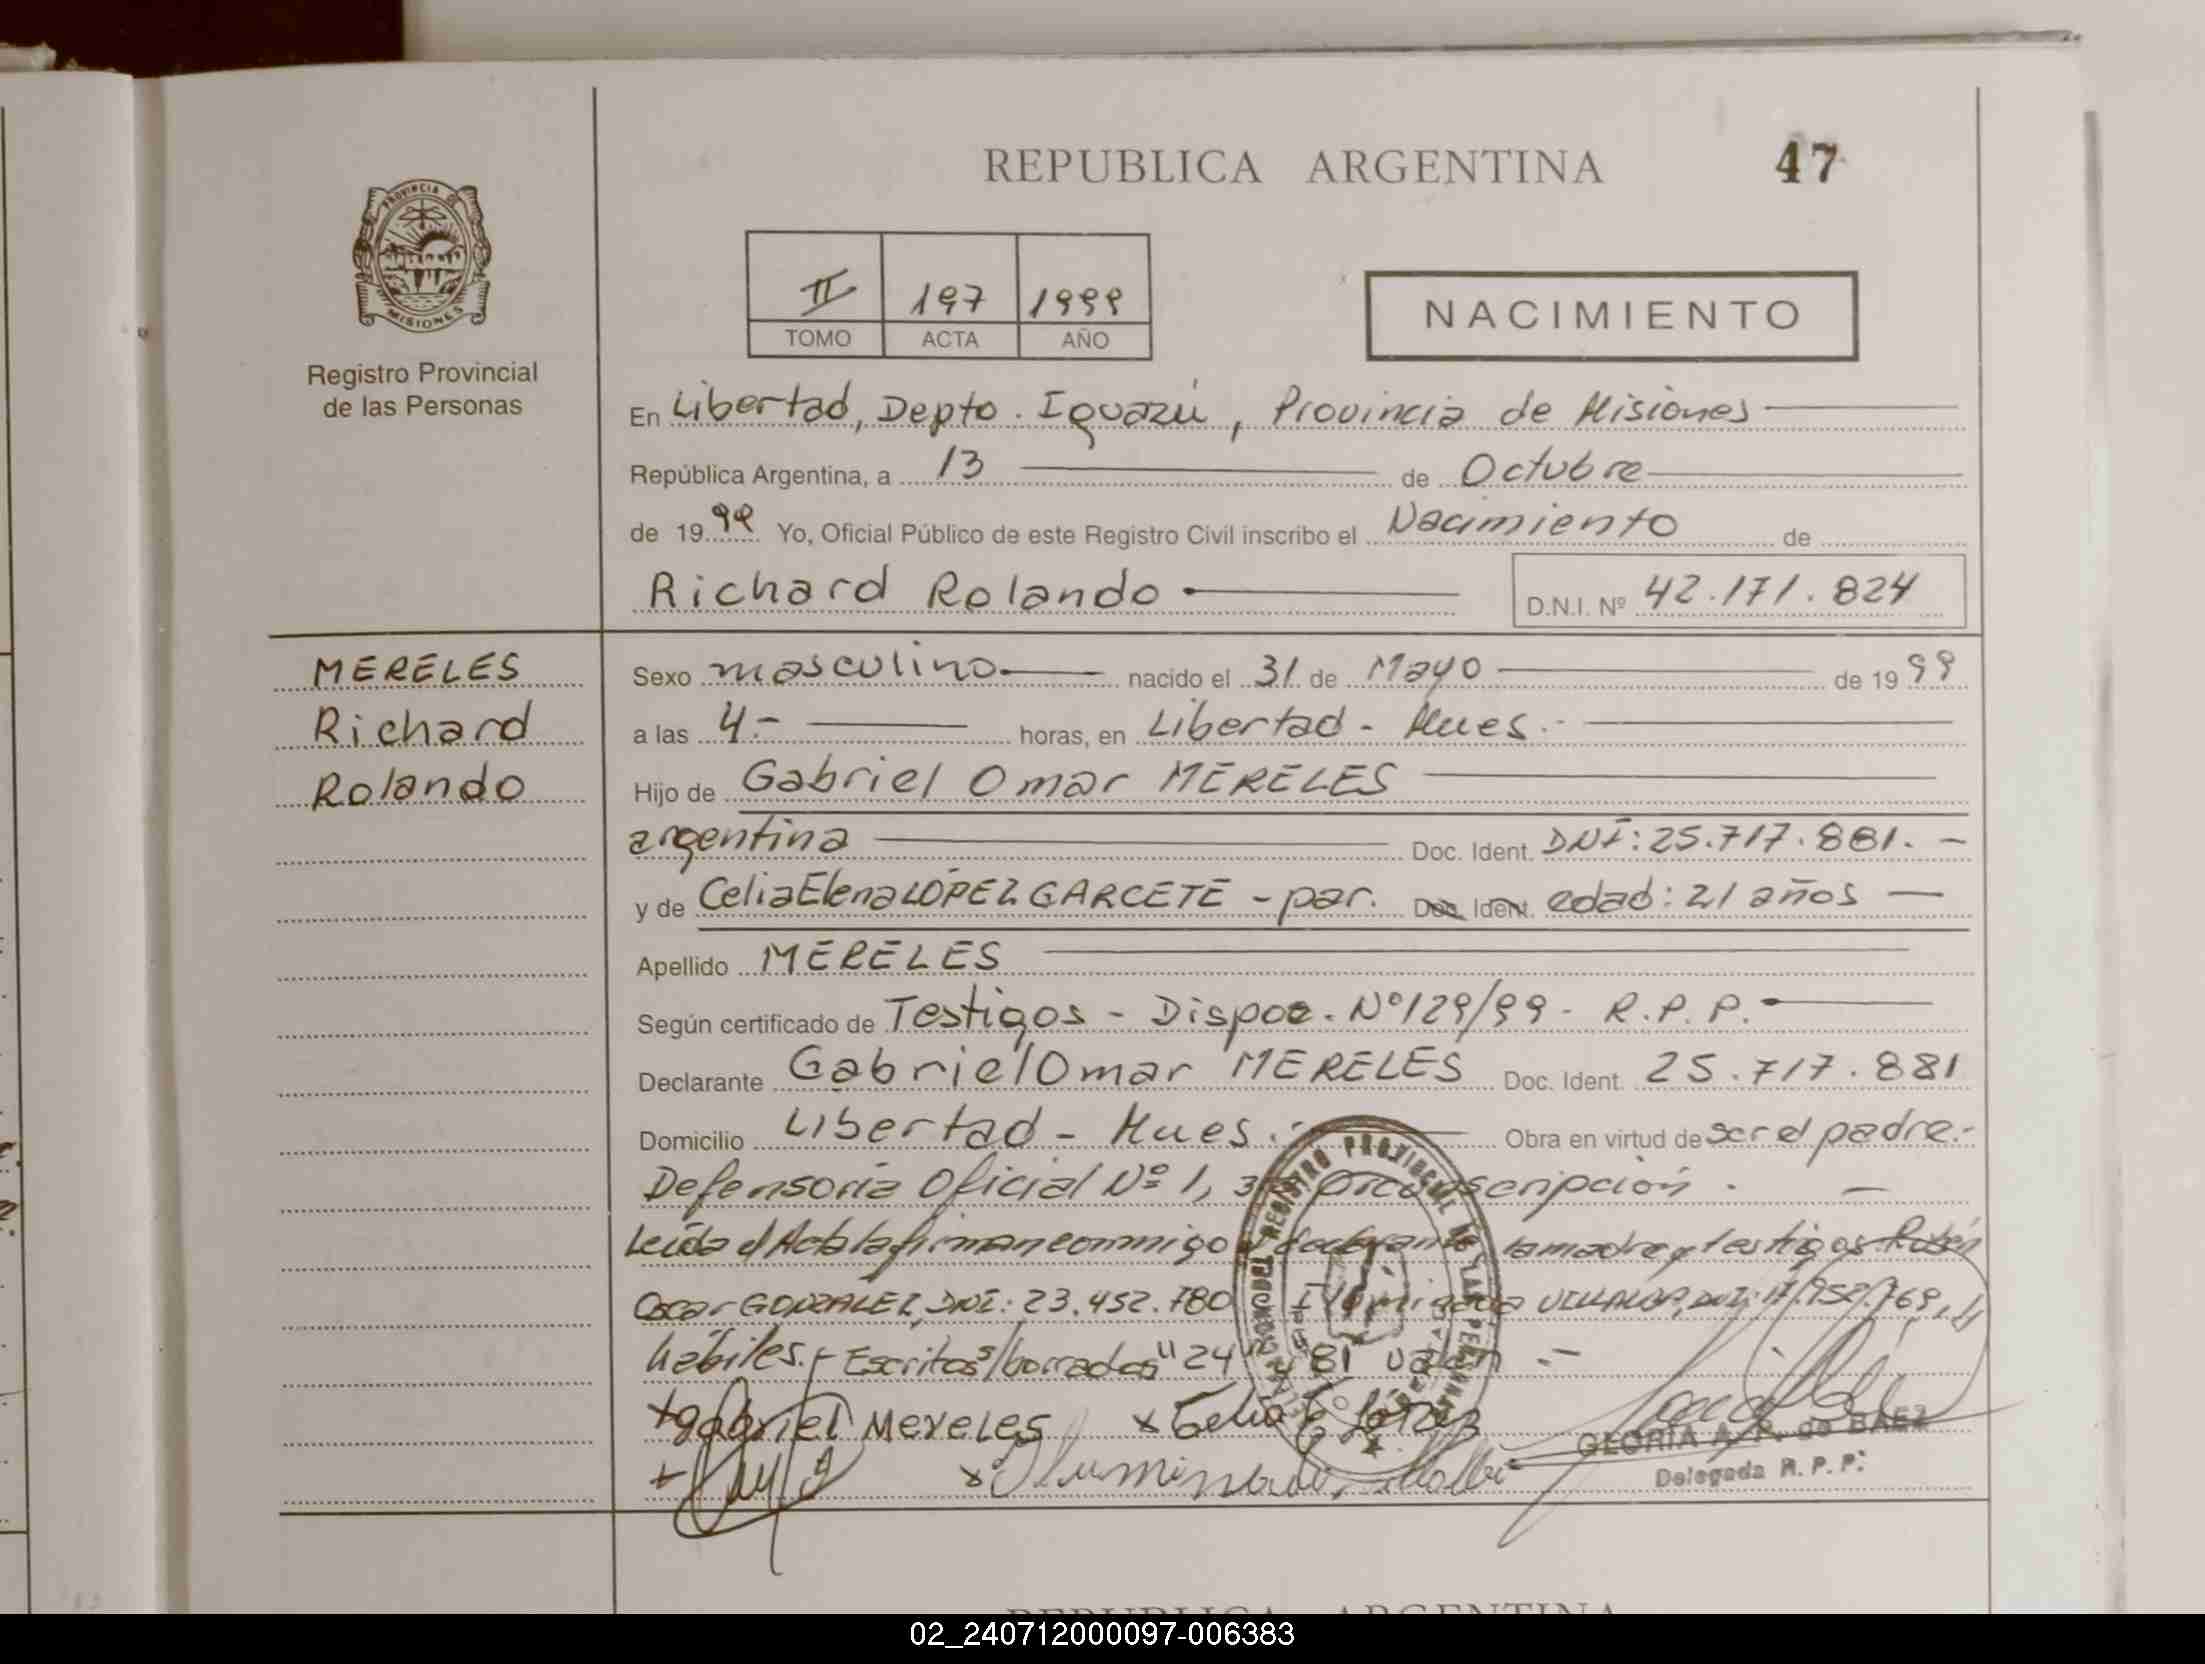 REPUBLICA ARGENTINA
47
PROVINCIA DE
MISIONES
Registro Provincial
de las Personas
II 197 1999
TOMO ACTA AÑO
NACIMIENTO
En Libertad, Depto. Iguazú, Provincia de Misiones
República Argentina, a 13 de Octubre
de 1999 Yo, Oficial Público de este Registro Civil inscribo el Nacimiento de
Richard Rolando D.N.I. Nº 42.171.824
MERELES
Richard
Rolando
Sexo masculino nacido el 31 de Mayo de 1999
a las 4.- horas, en Libertad - Mnes.-
Hijo de Gabriel Omar MERELES
argentina Doc. Ident. DNI: 25.717.881. -
y de Celia Elena LÓPEZ GARCETE - par. Doc. Ident. edad: 21 años
Apellido MERELES
Según certificado de Testigos - Dispoc. Nº 129/99 - R.P.P.
Declarante Gabriel Omar MERELES Doc. Ident. 25.717.881
Domicilio Libertad - Mnes.- Obra en virtud de ser el padre.-
Defensoría Oficial Nº 1, 3ª Circunscripción . -
Leída el Acta la firman conmigo el declarante, la madre y testigos Rubén
Oscar GONZALEZ, DNI: 23.452.780 Iluminada VILLALBA, DNI: 17.952.769,
hábiles.- Escritos s/borrados "24" y "81" valen .-
x Gabriel Mereles x Celia E López
x x Iluminada Villalba
GLORIA A. P. de BAEZ
Delegada R. P. P.
REGISTRO PROVINCIAL DE LAS PERSONAS
REPUBLICA ARGENTINA
02_240712000097-006383